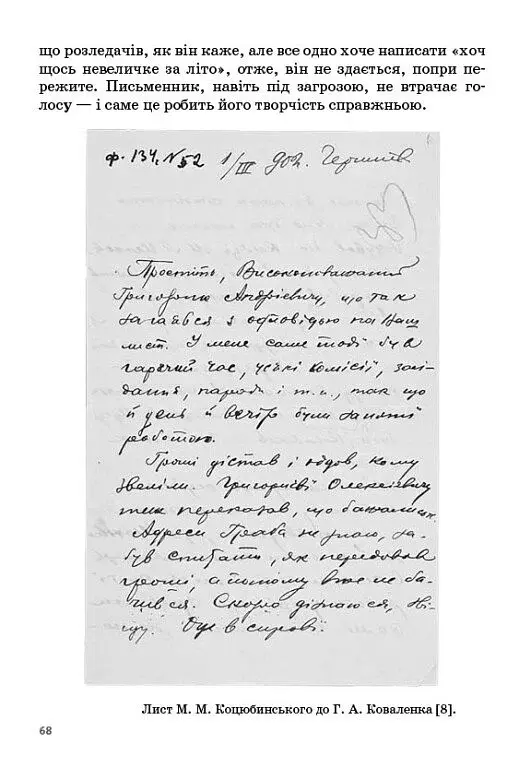 що розледачів, як він каже, але все одно хоче написати «хоч
щось невеличке за літо», отже, він не здається, попри пе-
режите. Письменник, навіть під загрозою, не втрачає го-
лосу — і саме це робить його творчість справжньою.
ф. 134, N 52 1/III 902. Чернигів
Простіть, Високоповажаний
Григорію Андрієвичу, що так
загаявся з одповіддю на Ваш
лист. У мене саме тоді був
гарячий час, усякі комісії, засі-
дання, наради і т. и., так що
й день й вечір були заняті
роботою.
Гроші дістав і оддав, кому
звеліли. Григорієві Олексієвичу
теж переказав, що бажали.
Адреси Граба не знаю, за-
був спитати, як передавав
гроші, а потому вже не ба-
чився. Скоро дізнаюся,
Оце в справі.
Лист М. М. Коцюбинського до Г. А. Коваленка [8].
68